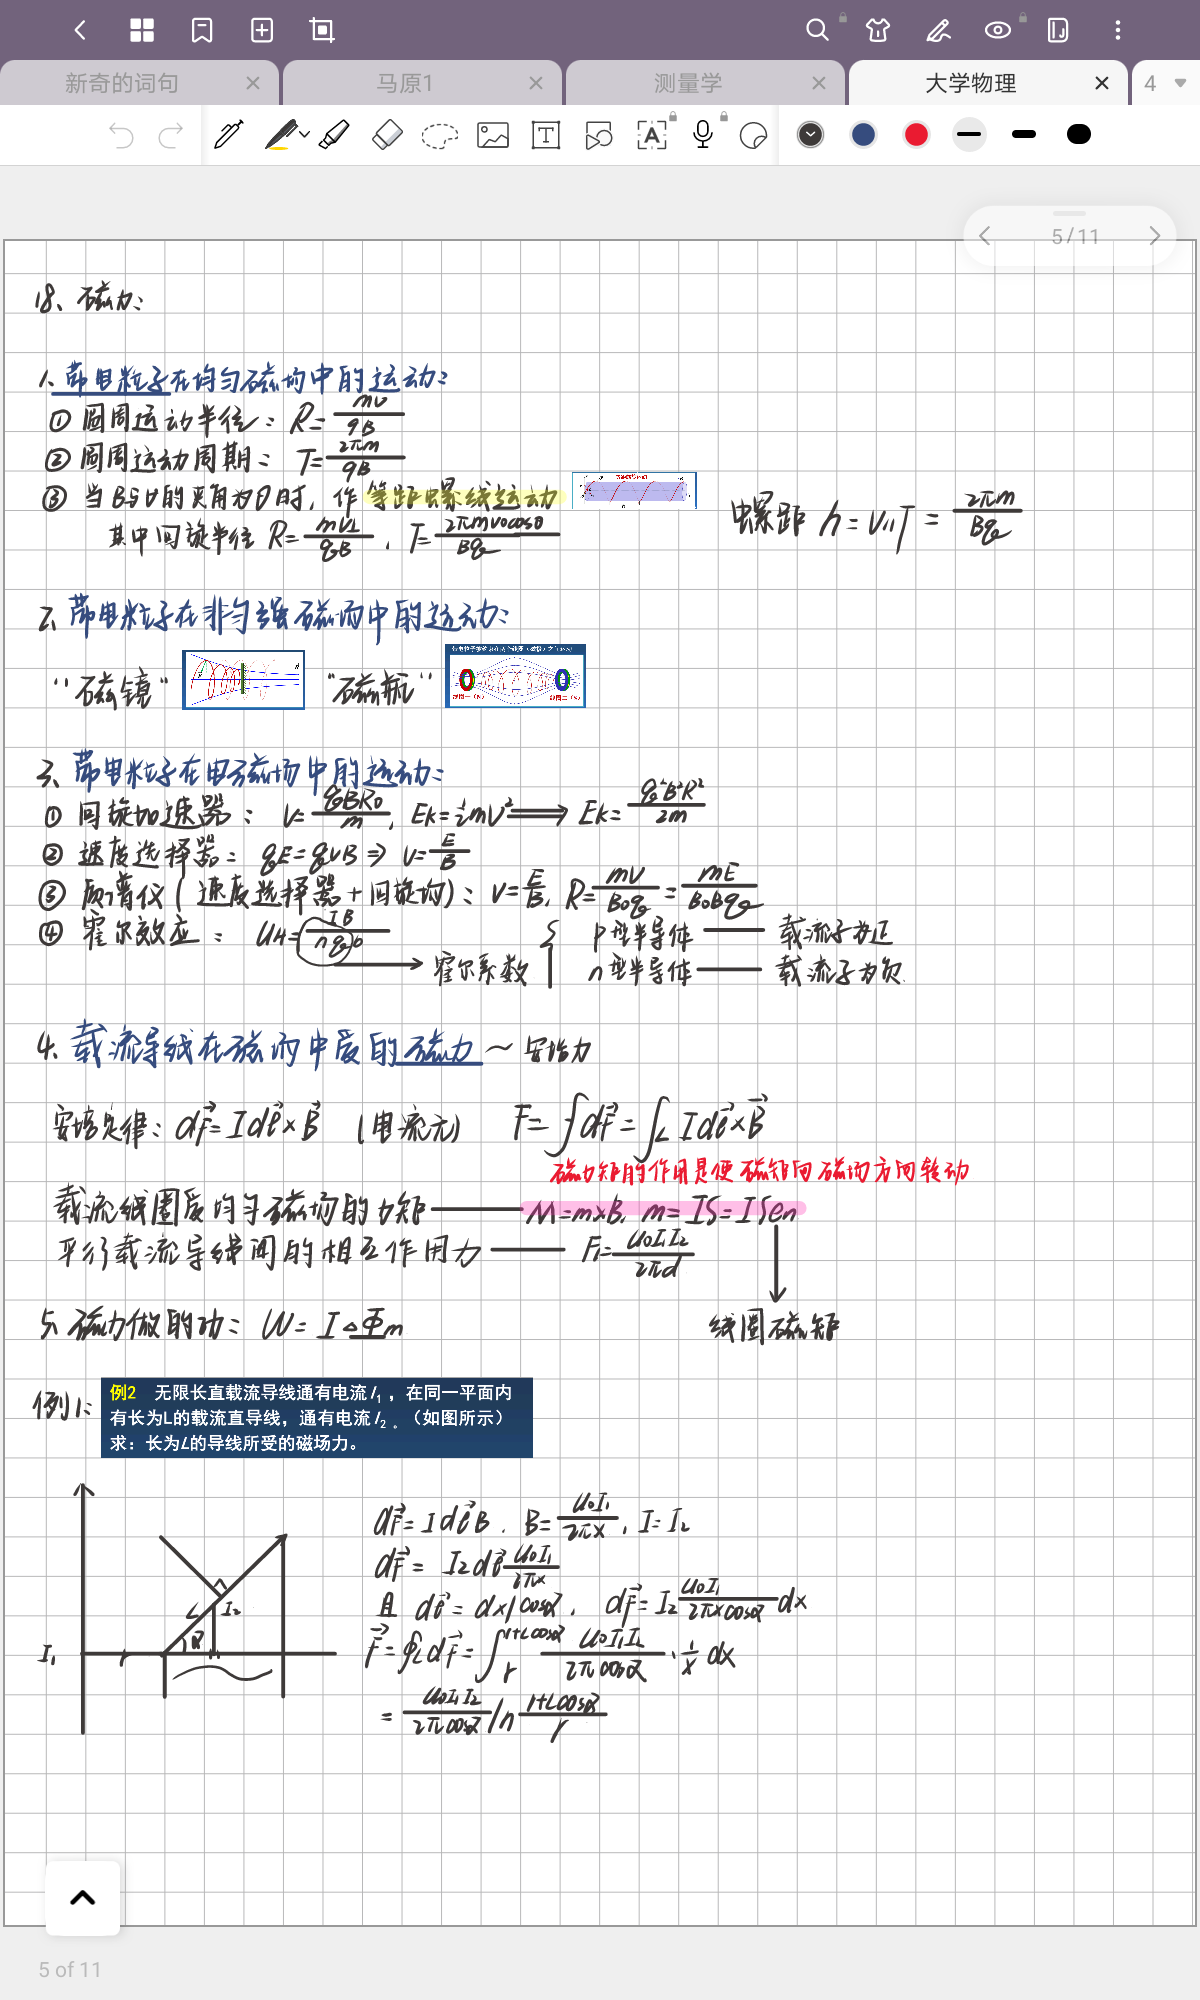 新奇的词句
马原1
测量学
大学物理
4
5/11
18、磁力:
1、带电粒子在均匀磁场中的运动:
① 圆周运动半径: R=mv/qB
② 圆周运动周期: T=2πm/qB
③ 当B与v的夹角为θ时, 作等距螺线运动
其中回旋半径 R=mv⊥/qB, T=2πmv0cosθ/Bq
螺距 h=v//T=2πm/Bq
2、带电粒子在非匀强磁场中的运动:
"磁镜" "磁瓶"
3、带电粒子在电磁场中的运动:
① 回旋加速器: v=qBR0/m, Ek=½mv²⟹ Ek=q²B²R²/2m
② 速度选择器: qE=qvB⇒v=E/B
③ 质谱仪(速度选择器+回旋均): v=E/B, R=mv/B0q=mE/B0Bq
④ 霍尔效应: UH=IB/nqb
→霍尔系数
p型半导体——载流子为正
n型半导体——载流子为负
4、载流导线在磁场中受的磁力~安培力
安培定律: dF=Idl×B (电流元) F=∫dF=∫L Idl×B
磁力矩的作用是使磁矩向磁场方向转动
载流线圈受均匀磁场的力矩——M=m×B, m=IS=ISen
平行载流导线间的相互作用力——F=μ0I1I2/2πd
线圈磁矩
5、磁力做的功: W=IΔΦm
例1:
例2 无限长直载流导线通有电流I1，在同一平面内
有长为L的载流直导线，通有电流I2。（如图所示）
求：长为L的导线所受的磁场力。
I1 r L α I2
dF=IdlB, B=μ0I1/2πx, I=I2
dF=I2dl μ0I1/2πx
且 dl=dx/cosα, dF=I2 μ0I1/2πxcosα dx
F=∮L dF=∫r r+Lcosα μ0I1I2/2πcosα·1/x dx
=μ0I1I2/2πcosα ln r+Lcosα/r
5 of 11